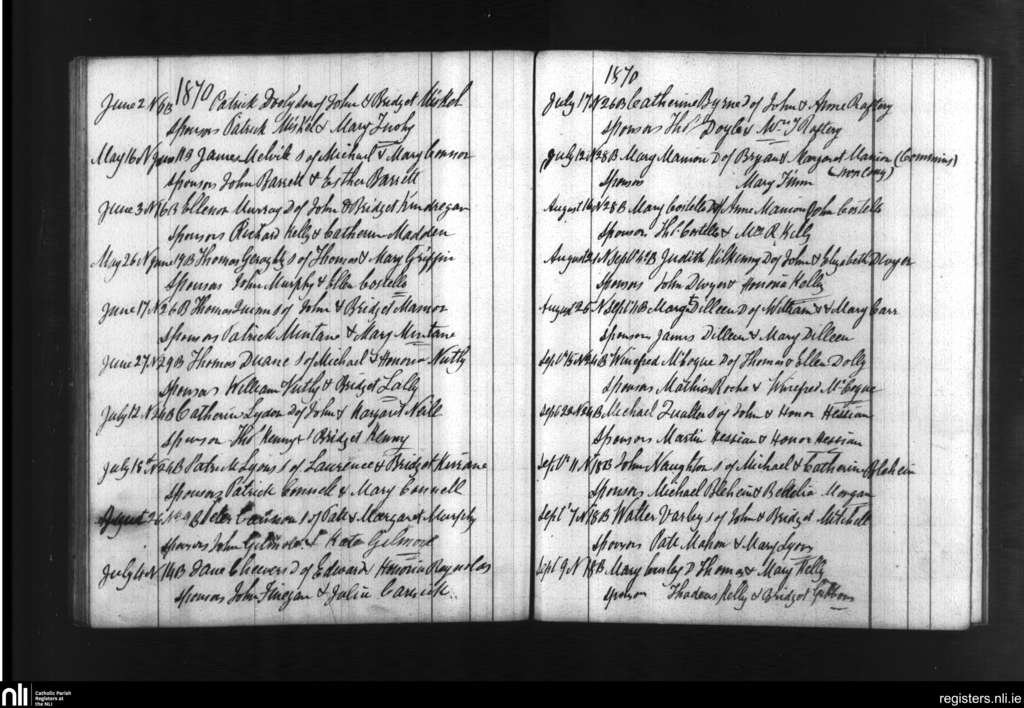 1870
June 2 N 6 B Patrick Dooly son of John & Bridget Miskel
Sponsors Patrick Miskel & Mary Tuohy
May 16 N June 11 B James Melvik S of Michael & Mary Connor
Sponsors John Barrett & Esther Barrett
June 3 N 16 B Ellenor Murray D of John & Bridget Kindregan
Sponsors Richard Kelly & Catherin Madden
May 26 N June 19 B Thomas Geraghty S of Thomas & Mary Griffin
Sponsors John Murphy & Ellen Costello
June 17 N 26 B Thomas Quinn S of John & Bridget Mannor
Sponsors Patrick Mintane & Mary Mintane
June 27 N 29 B Thomas Duane S of Michael & Honor Nutly
Sponsors William Nutly & Bridget Lally
July 12 N 24 B Catherin Lydon D of John & Margaret Neill
Sponson Thos Kenny & Bridget Kenny
July 15th N 24 B Patrick Lyons S of Laurence & Bridget Kirrane
Sponsors Patrick Connell & Mary Connell
August B Peter Cannon S of Patt & Margaret Murphy
Sponsors John Gilmore & Kate Gilmore
July 4 N 14 B Jane Cheevers D of Edward Honoria Reynolds
Sponsors John Finegan & Julia Carrick
1870
July 17 N 26 B Catherine Byrne D of John & Anne Raftery
Sponsors Thos Doyle & Wm J Raftery
July 12 N 28 B Mary Manion D of Bryan & Margaret Manion (Commins)
Sponsors Mary Finn
August 14 N 28 B Mary Costello D of Anne Manion John Costello
Sponson Thos Costello & Mrs R Kelly
August 21 N Sept 4th B Judith Kilkenny D of John & Elizabeth Dwyer
Sponsors John Dwyer & Honoria Kelly
August 25 N Sept 11 B Margt Dilleen D of William & Mary Carr
Sponson James Dilleen & Mary Dilleen
Sept 15 N 24 B Winefred McLogue D of Thomas & Ellen Dolly
Sponsors Mathias Roche & Winefred McLogue
Sept 22 N 24 B Michael Fualler S of John & Honor Hessian
Sponsors Martin Hessian & Honor Hessian
Sept 11 N 18 B John Naughton S of Michael & Catherin Blehein
Sponsors Michael Bleheine & Bedelia Morgan
Sept 7 N 18 B Walter Varley S of John & Bridget Mitchell
Sponsors Patt Mahon & Mary Lyons
Sept 9 N 18 B Mary Curley D Thomas & Mary Kelly
Sponson Thadeus Kelly & Bridget Gibbons
nli
Catholic Parish
Registers at
the NLI
registers.nli.ie